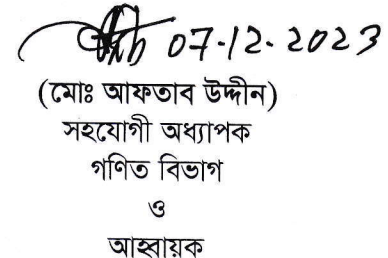 07-12-2023
(মোঃ আফতাব উদ্দীন)
সহযোগী অধ্যাপক
গণিত বিভাগ
ও
আহ্বায়ক